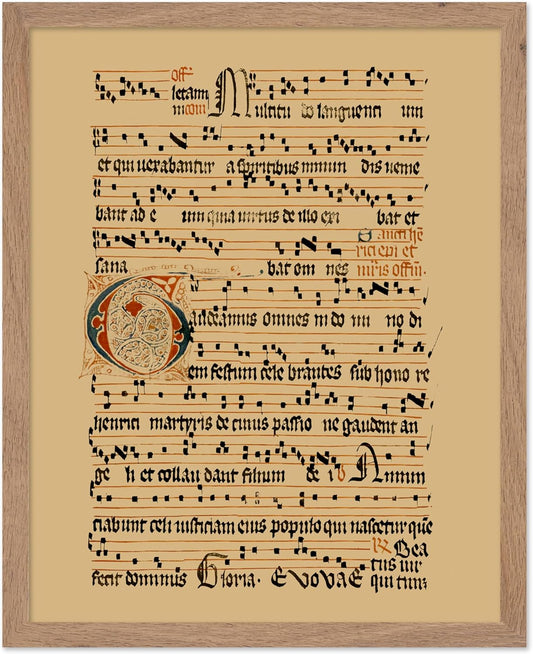 off
letamī
m com Multitu do languenti um
et qui uexabantur a spiritibus inmun dis ueniē
bant ad e um quia uirtus de illo exi bat et
Sancti hē
rici epi et
sana bat om nes mr̄is offm̄.
Gaudeamus omnes in do mi no di
em festum cele brantes sub hono re
henrici martyris de cuius passio ne gaudent an
ge li et collau dant filium de i ℣ Annun
ciabunt celi iusticiam eius populo qui nascetur quē
℟ Bea
fecit dominus Gloria. EVOVAE tus uir
qui tim;